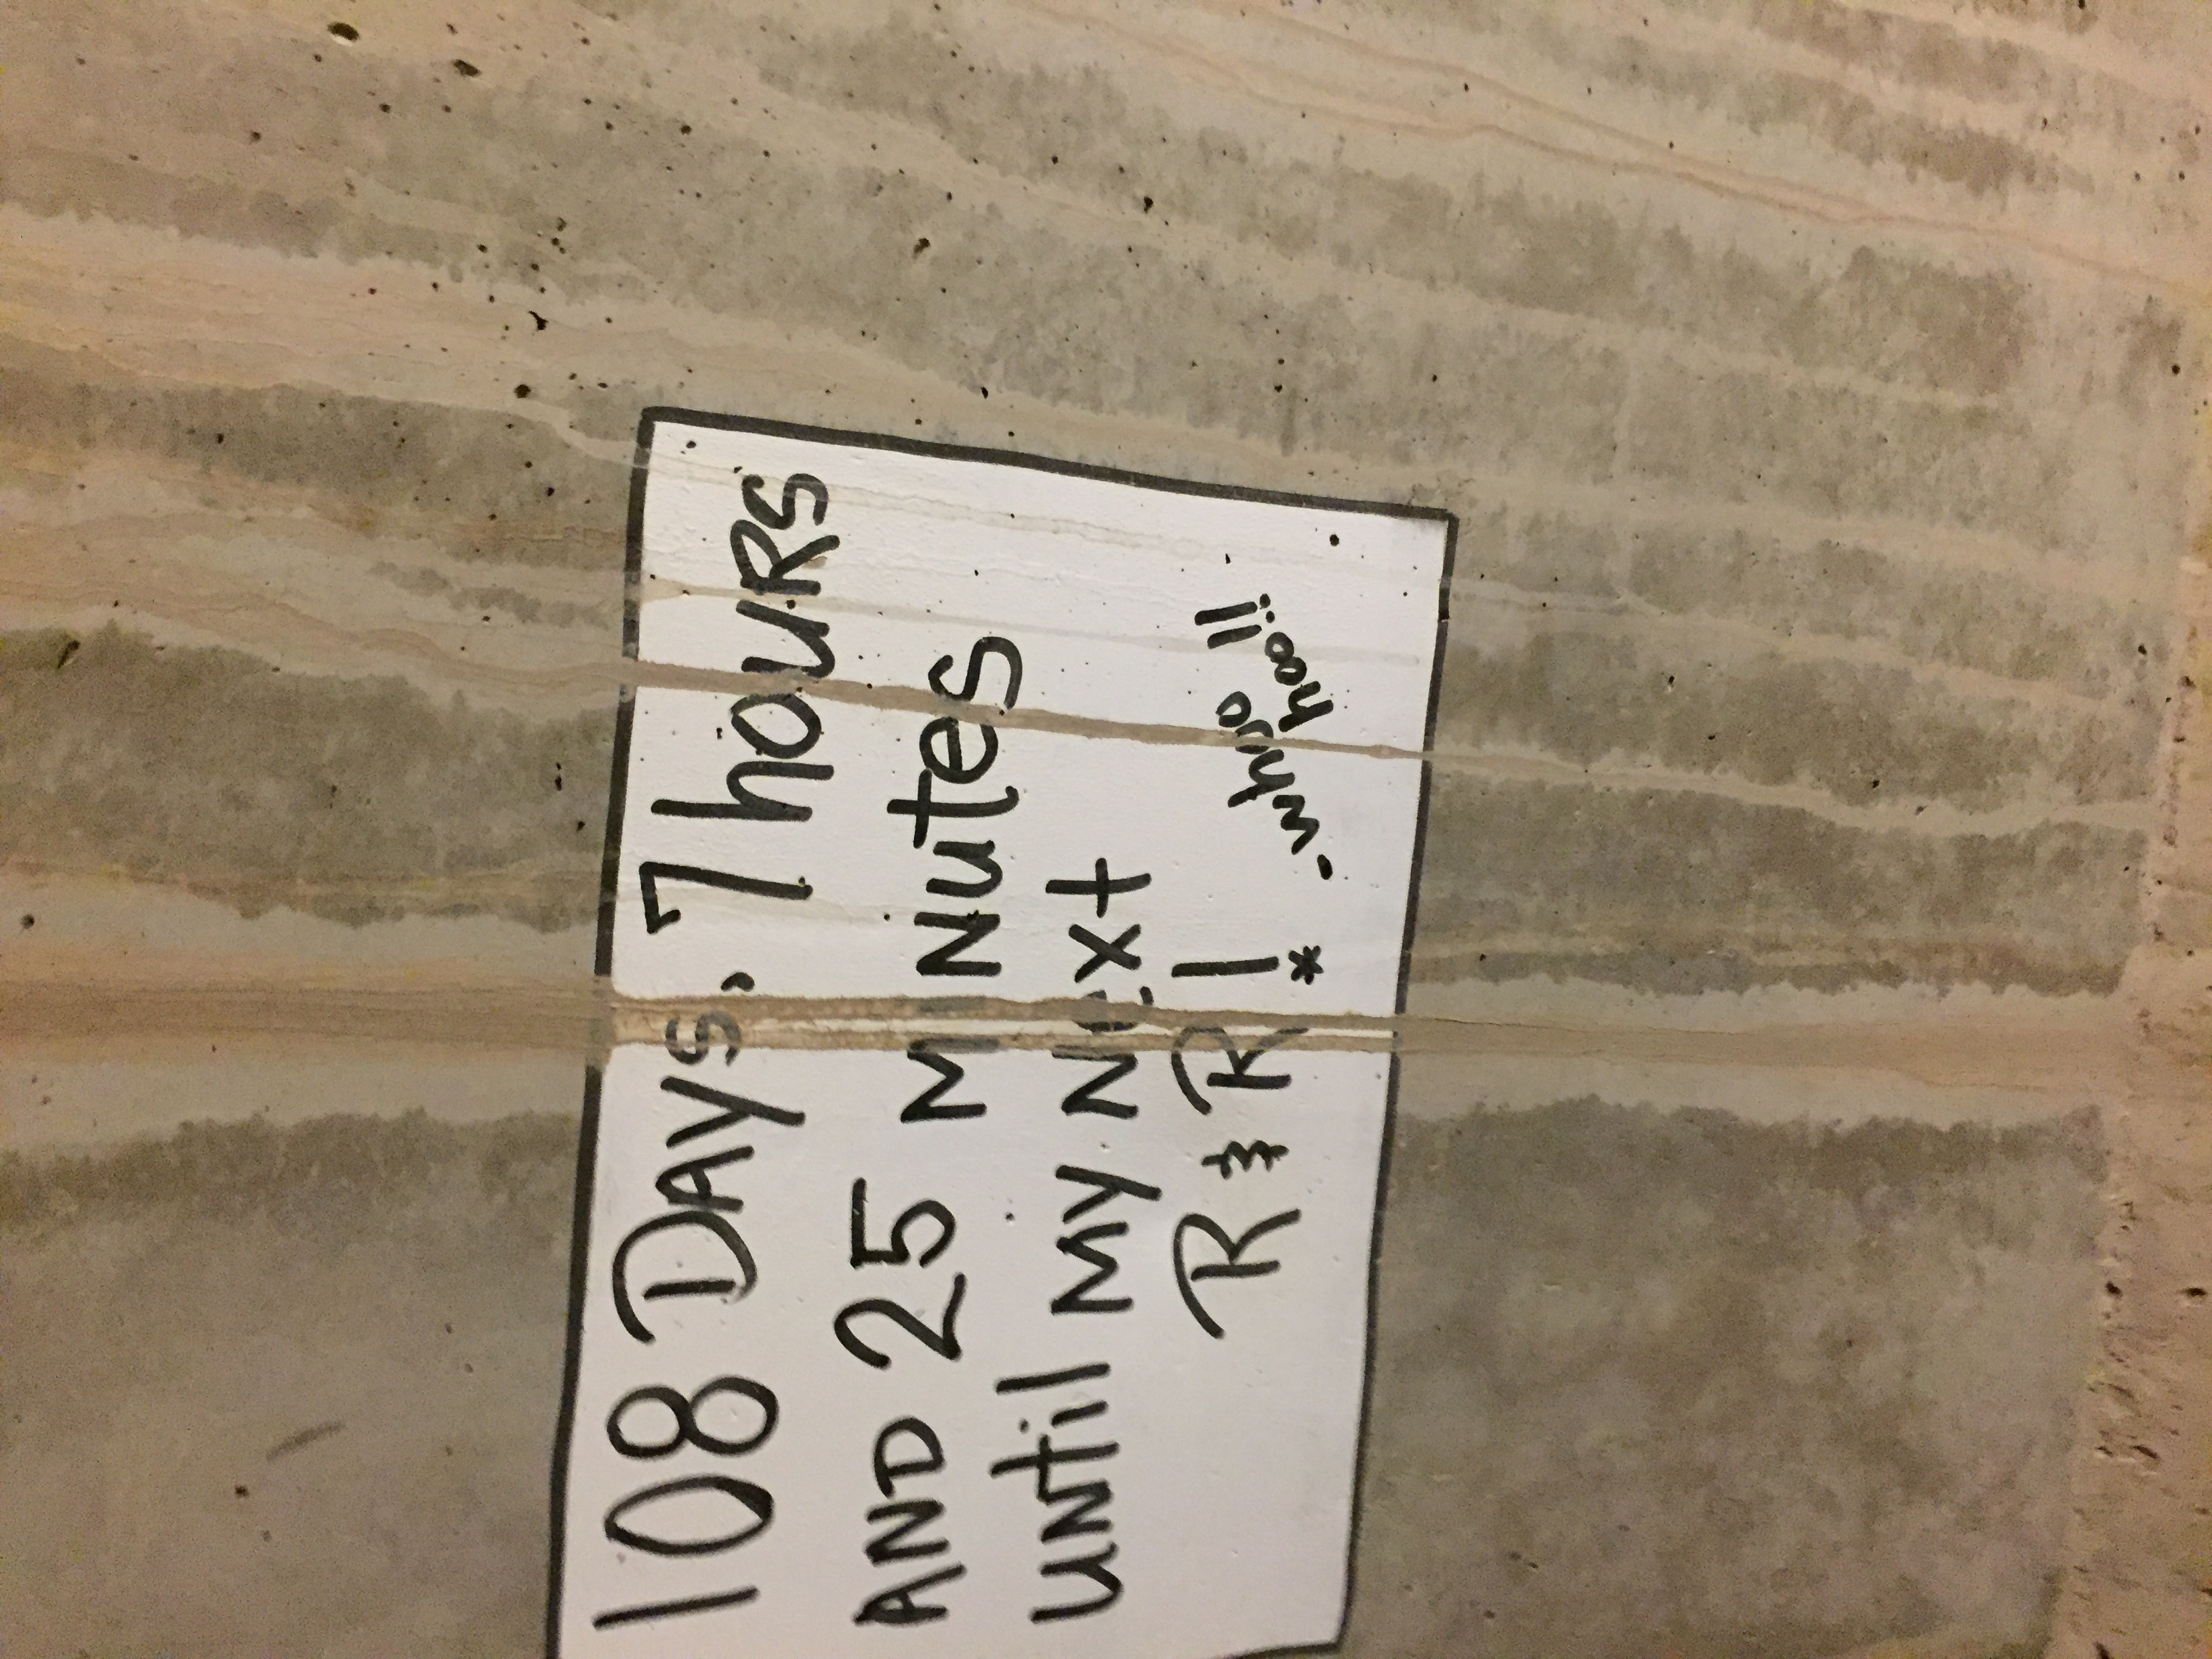 108 DAYS, 7 hOURS
AND 25 MINutes
UNtil My Next
R & R!
- whoo
hoo!!